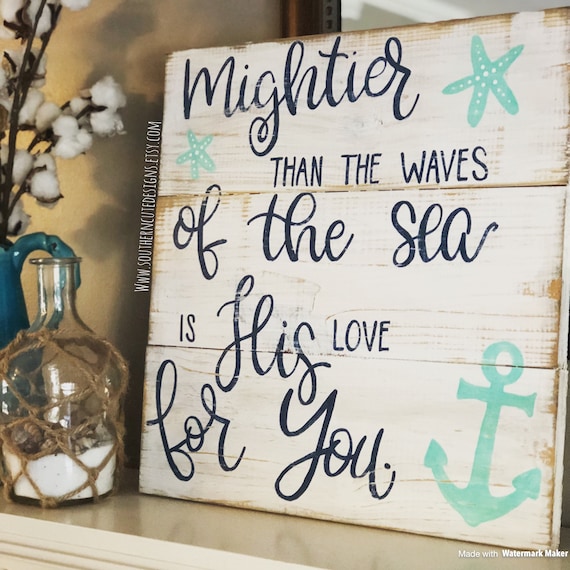 Mightier
THAN THE WAVES
of the sea
IS His LOVE
for You.
WWW.SOUTHERNCUTEDESIGNS.ETSY.COM
Made with Watermark Maker